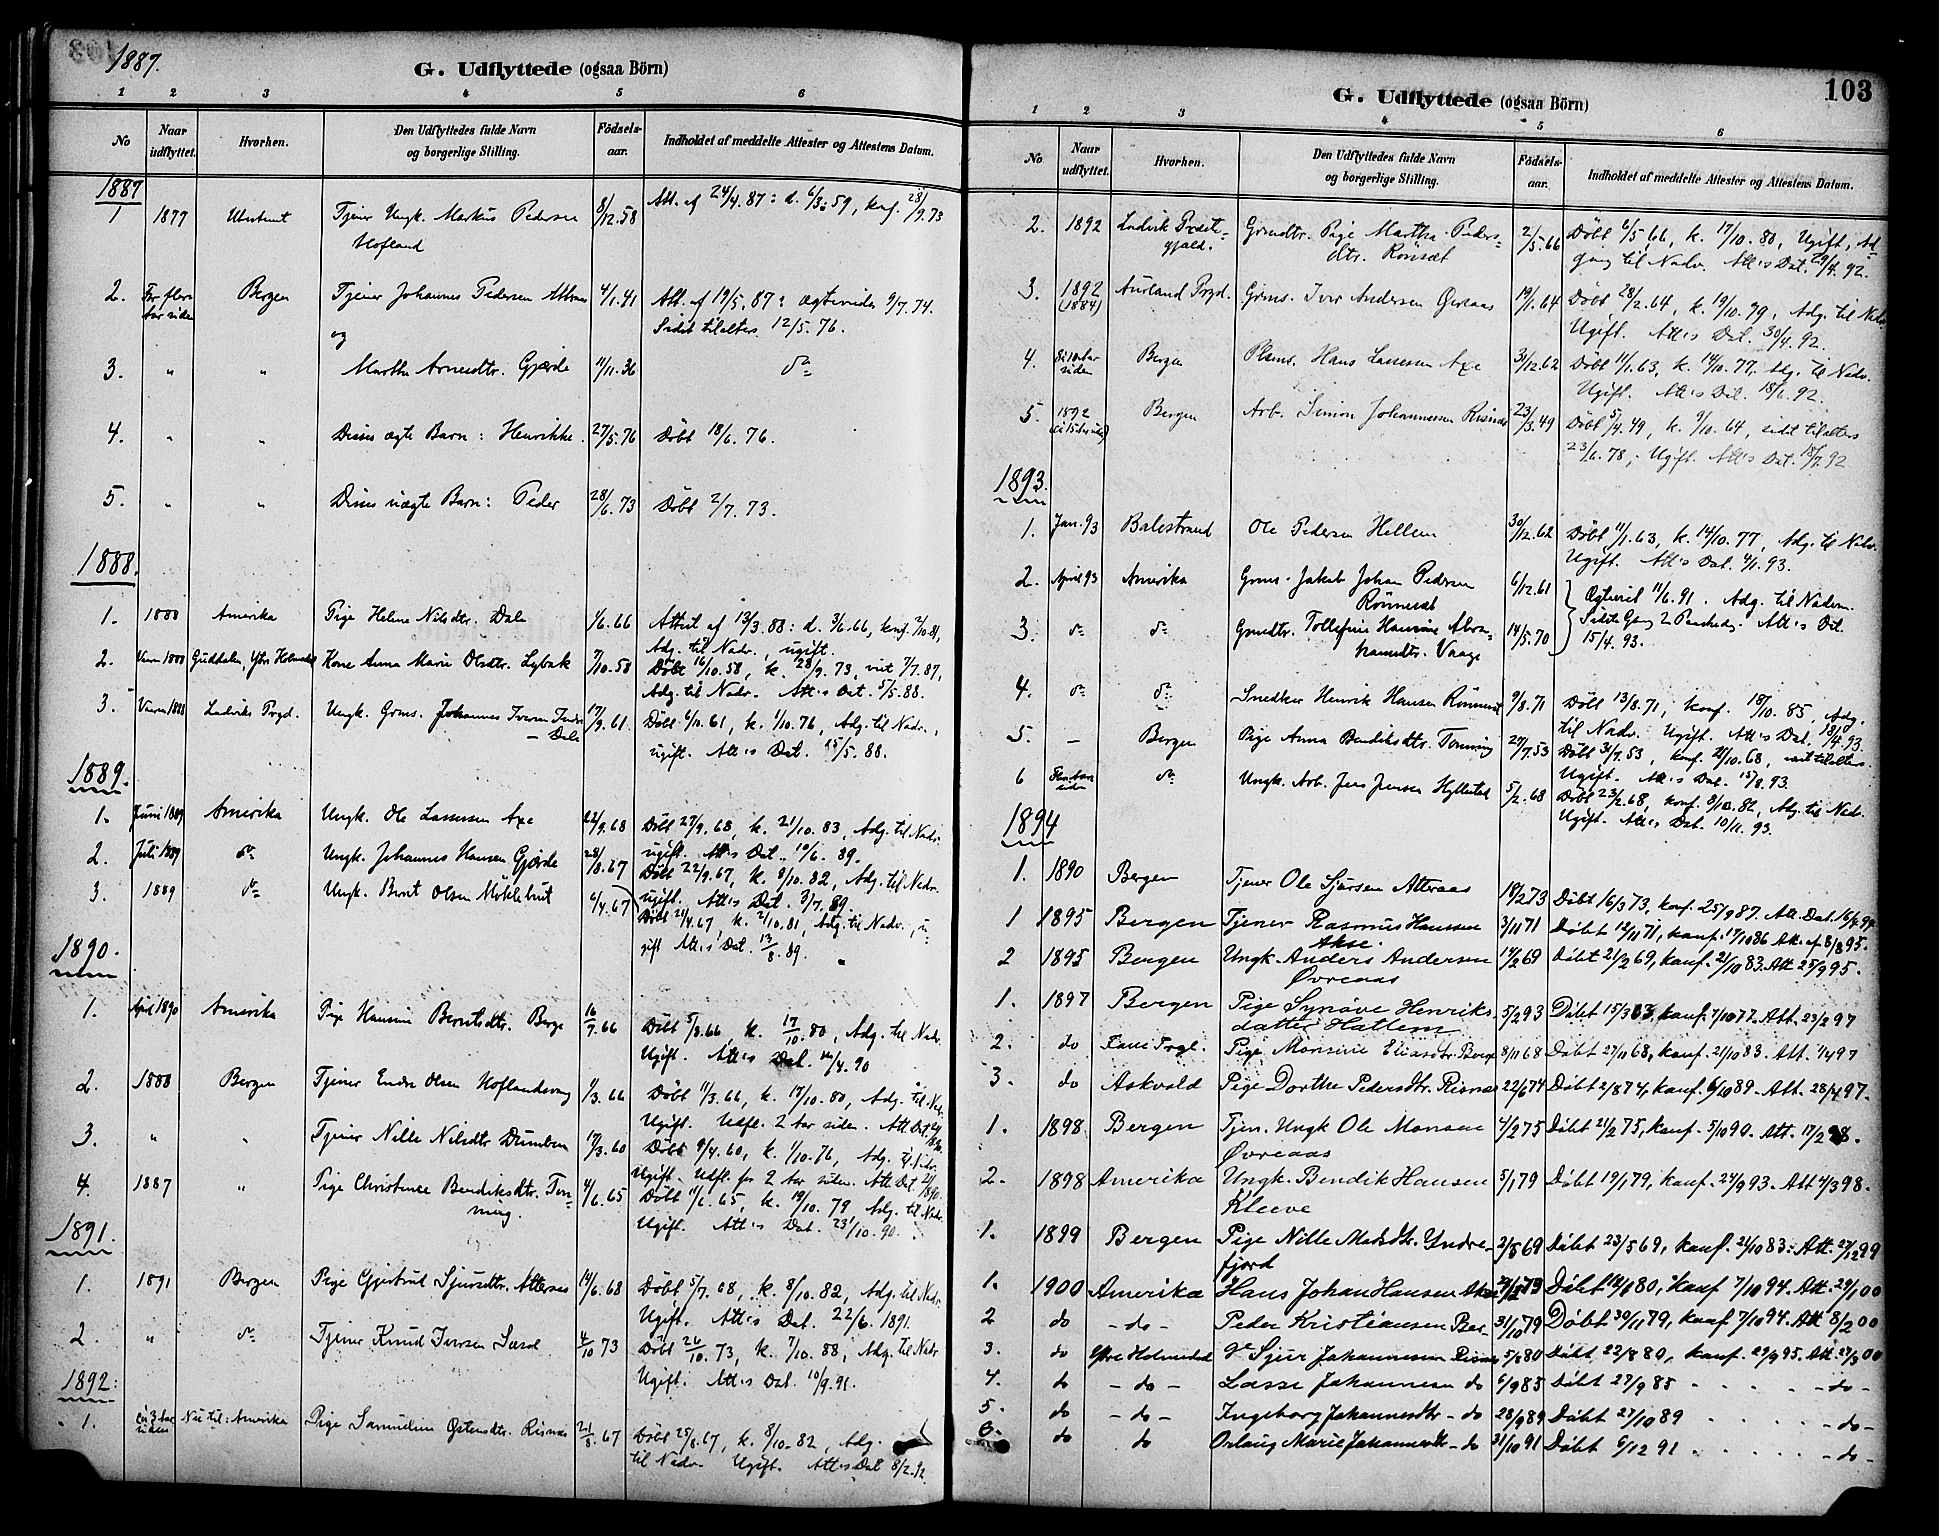 1887.
G. Udflyttede (ogsaa Börn)
1 2 3 4 5 6
No
Naar udflyttet.
Hvorhen.
Den Udflyttedes fulde Navn og borgerlige Stilling.
Födsels-aar.
Indholdet af meddelte Attester og Attestens Datum.
1887
1 1879 Tjener Ungk. Markus Pedersen 8/12.58 Att. af 24/4.87: d. 6/3.59, konf. 28/9.73
Hofland
2. For flere Aar siden Bergen Tjener Johannes Pedersen 4/1.41 Att. af 19/5.87: Ægteviede 9/7.74.
og Sidst tilalters 12/5.76.
3. " " Martha Arnesdtr. Gjærde 11/11.36 do
4. " " Disses ægte Barn: Henrikke. 27/5.76 Döbt 18/6.76.
5. " " Disses uægte Barn: Peder 28/6.73 Döbt 2/7.73.
1888.
1. 1888 Amerika Pige Helene Nilsdtr. Dale 1/6.66 Attest af 13/3.88: d. 3/6.66, konf. 2/10.81,
Adg. til Nadv., ugift.
2. 1888 Kone Anna Marie Olsdtr. Lybæk 7/10.58 Döbt 16/10.58, k. 28/9.73, viet 7/7.87,
Adg. til Nadv. Att's Dat. 5/5.88.
3. 1888 Ladviks Prgd. Ungk. Grms. Johannes Iversen 17/9.61 Döbt 6/10.61, k. 1/10.76, Adg. til Nadv.,
Dale ugift. Att's Dat. 15/5.88.
1889.
1. Juni 1889 Amerika Ungk. Ole Lassesen Axe 22/9.68 Döbt 27/9.68, k. 21/10.83, Adg. til Nadv.
ugift. Att's Dat. 10/6.89.
2. Juli 1889 do Ungk. Johannes Hansen Gjærde 28/8.67 Döbt 22/9.67, k. 8/10.82, Adg. til Nadv.
ugift. Att's Dat. 3/7.89.
3. 1889 do Ungk. Bernt Olsen Möklebust 6/4.67 Döbt 21/4.67, k. 2/10.81, Adg. til Nadv., u-
gift Att's Dat. 13/8.89.
1890.
1. April 1890 Amerika Pige Hansine Berntsdtr. Berge 16/7.66 Döbt 5/8.66, k. 17/10.80, Adg. til Nadv.
Ugift. Att's Dat. 4.90
2. 1888 Bergen Tjener Endre Olsen 1/3.66 Döbt 11/3.66, k. 17/10.80, Adg. til Nadv.
Ugift. Udfl. 2 Aar siden. Att. Dat.
3. " " Tjener Nille Nilsdtr 17/3.60 Döbt 9/4.60, k. 1/10.76, Adg. til Nadv.
Ugift. Udfl. for 2 Aar siden. Att. Dat
4. 1887 " Pige Christence Bendiksdtr. Ton- 4/6.65 Döbt 11/6.65, k. 19/10.79 Adg. til Nadv.
ning. Ugift. Att's Dat. 23/10.90.
1891.
1. 1891 Bergen Pige Gjertrud Sjursdtr. Atteraas 14/6.68 Döbt 5/7.68, k. 8/10.82, Adg. til Nadv.
Ugift. Att's Dat. 22/6.1891.
2 " do Tjener Knud Iversen 4/10 73 Döbt 26/10.73, k. 7/10.88, Adg. til Nadv
Ugift. Att's Dat. 10/9.91.
1892.
1. ca 3 Aar siden Nu til: Amerika Pige Samueline Östensdtr. Risnæs 21/8.67 Döbt 25/8.67, k. 8/10.82, Adg.
til Nadv. Ugift. Att's Dat 8/2.92.
103
G. Udflyttede (ogsaa Börn)
1 2 3 4 5 6
No
Naar udflyttet.
Hvorhen.
Den Udflyttedes fulde Navn og borgerlige Stilling.
Födsels-aar.
Indholdet af meddelte Attester og Attestens Datum.
2. 1892 Ladvik Præste- Grmdtr. Pige Martha Peders- 2/5.66 Döbt 6/5.66, k. 17/10.80, Ugift, Ad-
gjæld. dtr. Rönsæt gang til Nadv. Att's Dat. 29/4.92.
3. 1892 Aurland Prgd. Grms. Iver Andersen Övreaas 19/1.64 Döbt 28/2.64, k. 19/10.79, Adg. til Nadv.
(1884) Ugift. Att's Dat. 30/4.92.
4. 10 Aar siden Bergen Plsms. Hans Lassesen Axe 31/12.62 Döbt 11/1.63, k. 14/10.77. Adg. til Nadv.
Ugift. Att's Dat. 18/6.92.
5. 1892 Bergen Arb. Simon Johannessen Risnes 23/3.49 Döbt 5/4.49, k. 9/10.64, sidst tilalters
23/6.78, Ugift. Att's Dat. 18/7.92
1893.
1. Jan. 93 Balestrand Ole Pedersen Hellem 30/12.62 Döbt 11/1.63, k. 14/10.77, Adg. til Nadv.
Ugift. Att's Dat. 4/1.93.
2. April 93 Amerika Grms. Jakob Johan Pedersen 6/12.61 Ægteviet 11/6.91. Adg. til Nadv.
Rönnesæt
3. do do Grmdtr. Tollefine Hansine Abra- 14/5.70 Att's Dat.
hamsdtr. Vaage 15/4.93.
4. do do Snedker Henrik Hansen Rönneset 9/8.71 Döbt 13/8.71, konf. 18/10.85, Adg.
til Nadv. Ugift. Att's Dat. 18/4.93.
5. – Bergen Pige Anna Bendiksdtr. Tonning 27/7.53 Döbt 31/7.53, konf. 21/10.68,
Ugift. Att's Dat. 15/8.93.
6 do Ungk. Arb. Jens Jensen Hyllestad 5/2.68 Döbt 23/2.68, konf. 8/10.82, Adg. til Nadv.
Ugift. Att's Dat. 10/11.93.
1894
1. 1890 Bergen Tjener Ole Sjursen Atteraas 18/2 73 Döbt 16/3 73, konf. 25/9 87. Att. Dat. 16/2 94
1 1895 Bergen Tjener Rasmus Hanssen 3/11 71 Döbt 12/11 71, konf. 17/10 86 Att. af 8/8 95.
Akse.
2 1895 Bergen Ungk. Anders Andersen 14/2 69 Döbt 21/2 69, konf. 21/10 83. Att 25/9 95.
Övreaas
1. 1897 Bergen Pige Synöve Henriks- 5/2 93 Döbt 15/3 63, konf. 7/10 77. Att. 23/2 97
datter Hatlem
2. do Fane Prgl. Pige Monsine Eliasdtr. Berge 8/11 68 Döbt 27/11 68, konf. 21/10 83. Att. 1/4 97
3. do Askvold Pige Dorthe Pedersdtr. Risnes 22/6 74 Döbt 2/8 74, konf. 6/10 89. Att. 28/4 97.
1. 1898 Bergen Tjen. Ungk Ole Monsen 4/2 75 Döbt 21/2 75, konf. 5/10 90. Att. 17/2 98.
Övreaas
2. 1898 Amerika Ungk. Bendik Hansen 5/1 79 Döbt 19/1 79, konf. 24/9 93. Att 4/3 98.
Kleeve
1. 1899 Bergen Pige Nille Madsdtr. Yndre- 2/5 69 Döbt 23/5 69, konf. 21/10 83. Att. 27/12 99
fjord
1. 1900 Amerika Hans Johan Hansen Akse 79 Döbt 80, konf 7/10 94. Att. 29/1 00
2 do – do – Peder Kristiansen Ber- 31/10 79 Döbt 30/11 79, konf 7/10 94. Att 8/2 00
3. do Ytre Holmedal Sjur Johannesen Risnes 5/8 80 Döbt 22/8 80, konf. 29/9 95. Att. 27/3 00
4. do – do – Lasse Johannesen do 6/9 85 Döbt 27/9 85 – do –
5. do – do – Ingeborg Johannesdtr – do 28/9 89 Döbt 27/10 89 – do –
6. do do Orlaug Marie Johannesdtr – do 31/10 91 Döbt 6/12 91 – do –